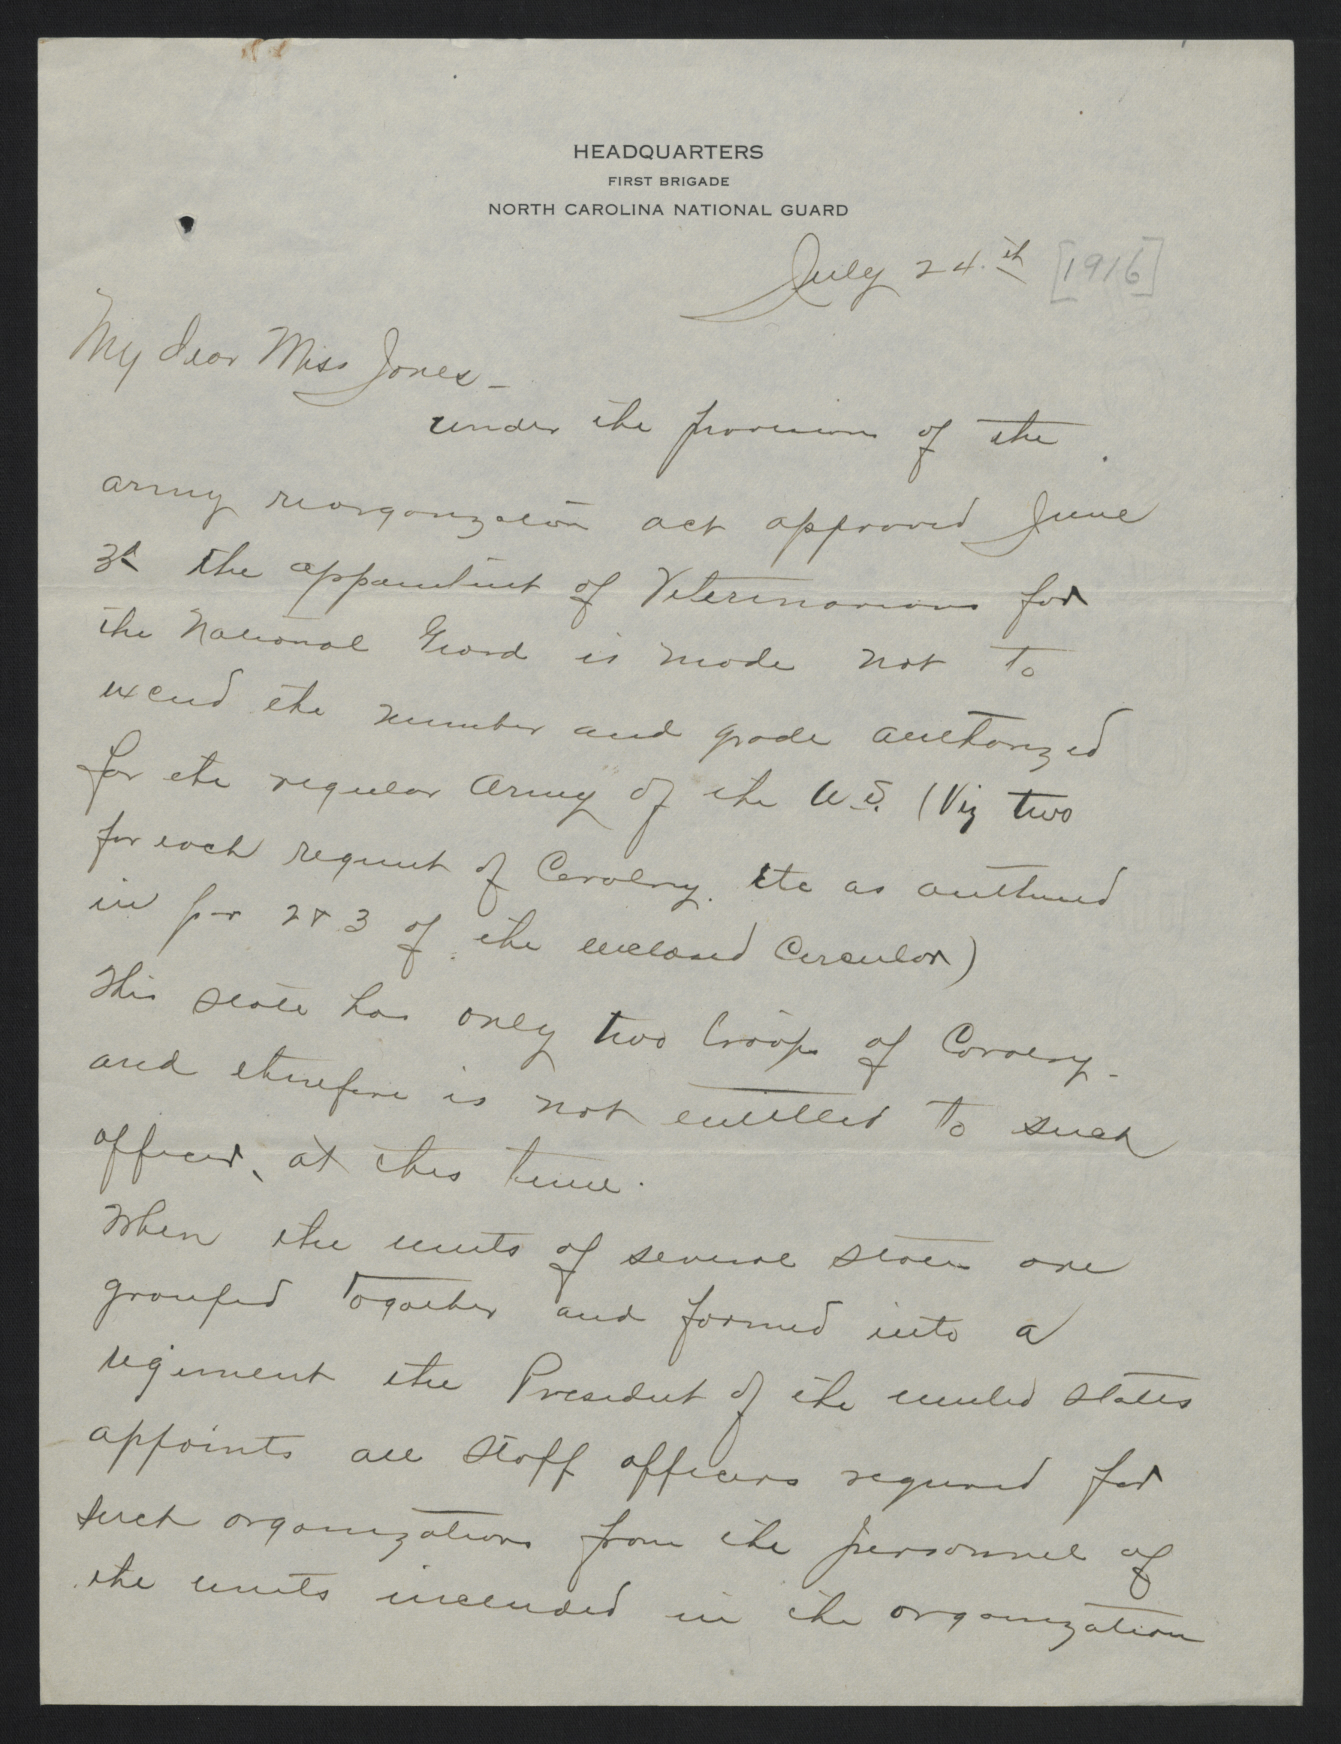 HEADQUARTERS
FIRST BRIGADE
NORTH CAROLINA NATIONAL GUARD
July 24.th [1916]
My dear Miss Jones -
under the provisions of the
army reorganization act approved June
3d the appointment of Veterinarians for
the National Guard is made not to
exceed the number and grade authorized
for the regular Army of the U.S. (Viz two
for each regiment of Cavalry. etc as
in par 2 & 3 of the enclosed Circular)
This state has only two troops of Cavalry -
and therefore is not entitled to such
officer, at this time.
When the units of several states are
grouped together and formed into a
regiment the President of the united states
appoints all staff officers required for
such organizations from the personnel of
the units included in the organization